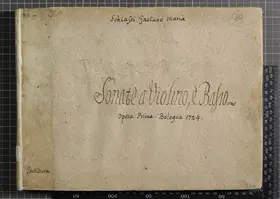 Schiassi Gaetano Maria
Sonate a Violino, è Basso
Opera Prima - Bologna 1724.